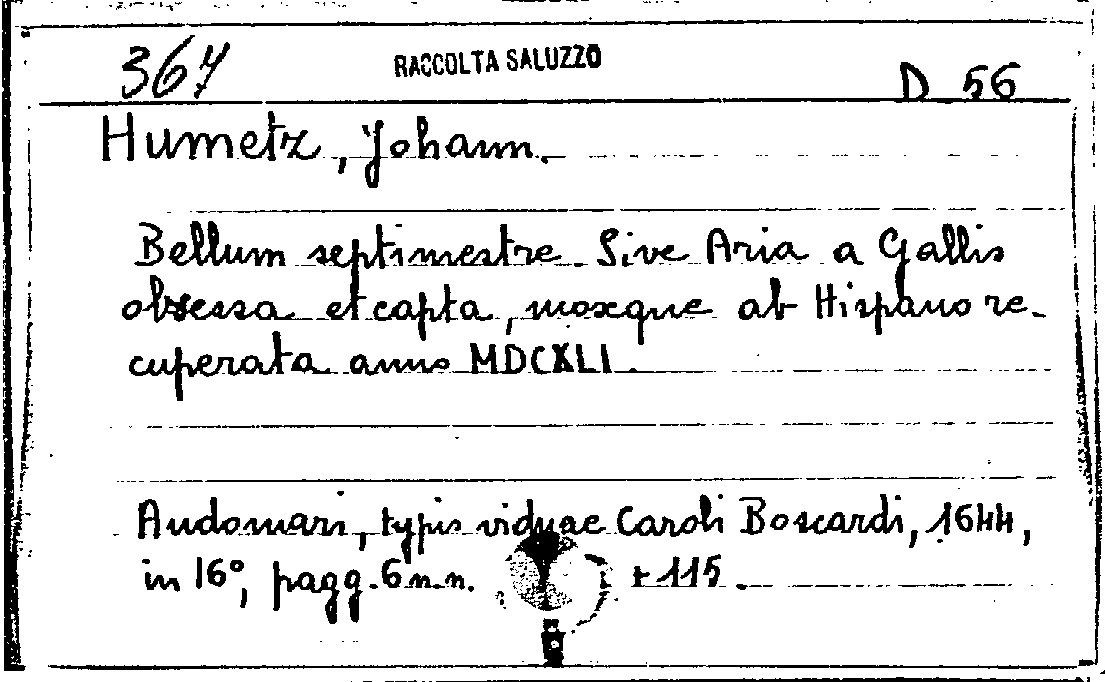 367 RACCOLTA SALUZZO D 56
Humetz, Johann.
Bellum septimestre. Sive Aria a Gallis
obsessa et capta, moxque ab Hispano re-
cuperata anno MDCXLI.
Audomari, typis viduae Caroli Boscardi, 1644,
in 16°, pagg. 6 n.n. + 115.